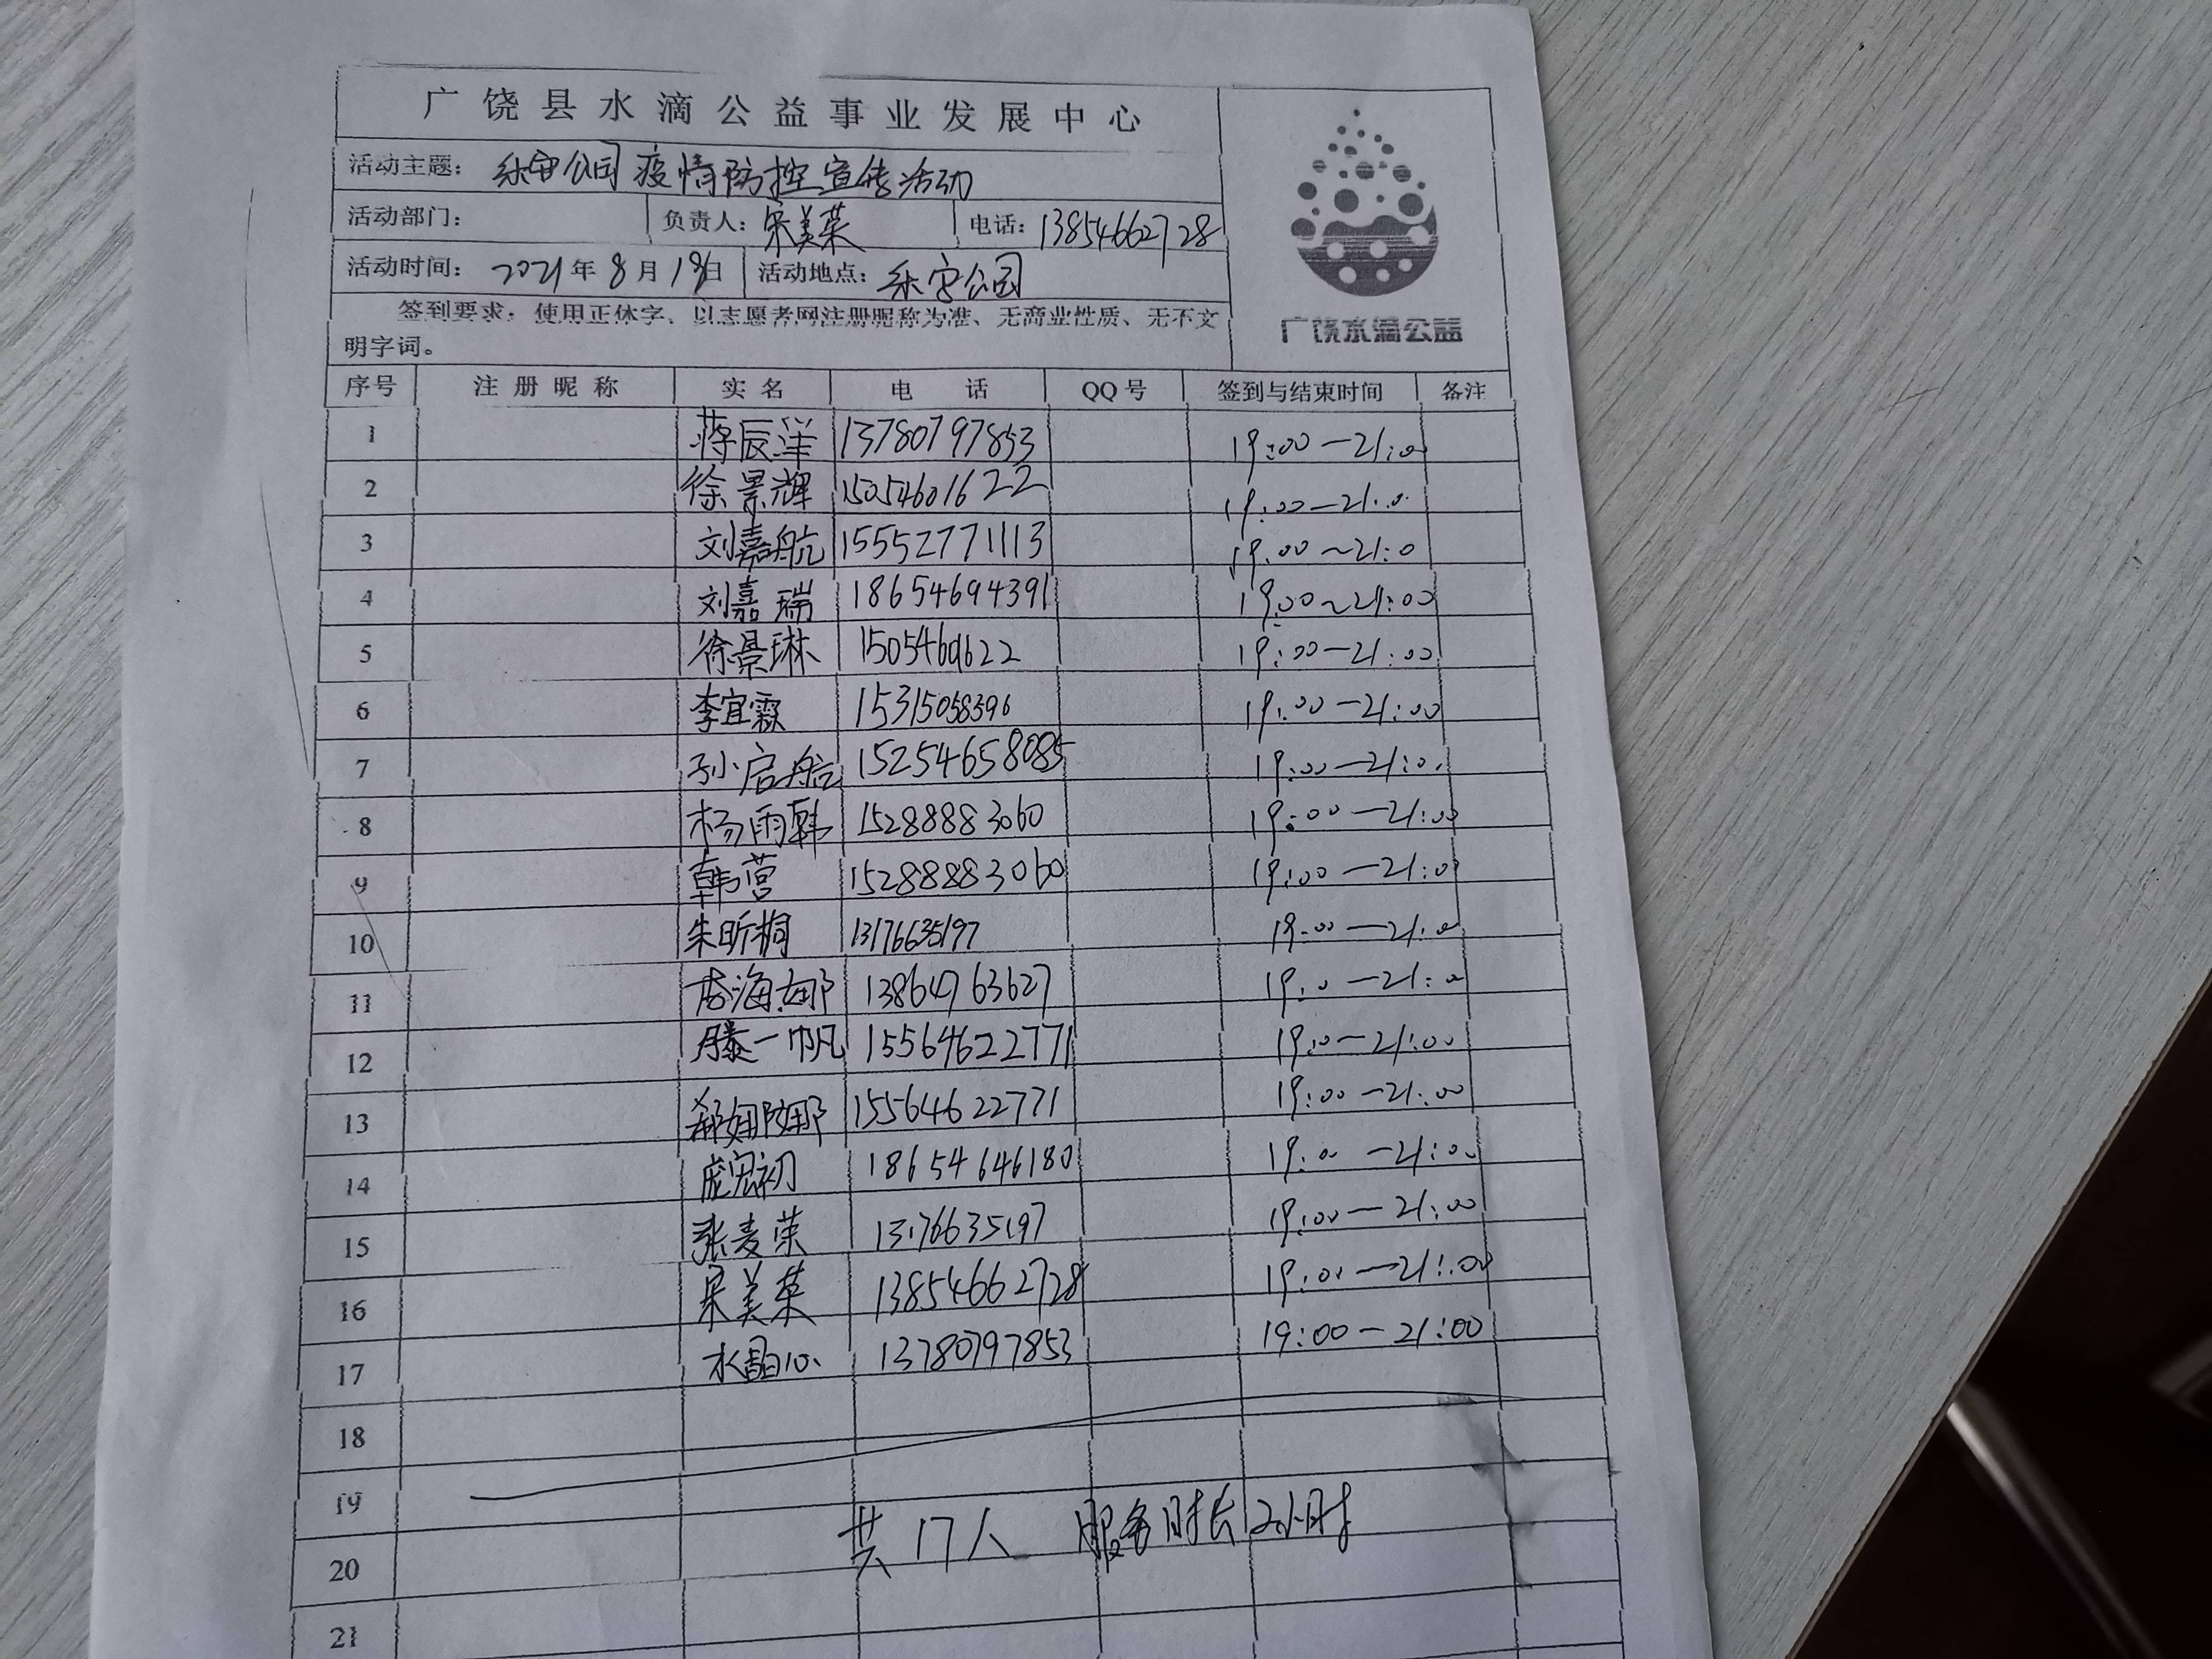 广饶县水滴公益事业发展中心
活动主题：乐安公园疫情防控宣传活动
活动部门： 负责人：宋美荣 电话：13854662728
活动时间：2021年8月18日 活动地点：乐安公园
签到要求：使用正体字、以志愿者网注册昵称为准、无商业性质、无不文
明字词。
广饶水滴公益
序号 注册昵称 实名 电话 QQ号 签到与结束时间 备注
1 蒋辰洋 13780797853 19:00—21:00
2 徐景辉 15054601622 19:00—21:00
3 刘嘉航 15552771113 19:00~21:0
4 刘嘉瑞 18654694391 19:00~21:00
5 徐景琳 15054601622 19:00—21:00
6 李宜霖 15315058396 19:00—21:00
7 孙启航 15254658085 19:00—21:00
8 杨雨韩 15288883060 19:00—21:00
9 韩营 15288883060 19:00—21:00
10 朱昕桐 13176635197 19:00—21:00
11 海娜 13864763627 19:00—21:00
12 滕一帆 15564622771 19:00—21:00
13 郗娜娜 15564622771 19:00—21:00
14 庞宏初 18654646180 19:00—21:00
15 张麦荣 13176635197 19:00—21:00
16 宋美荣 13854662728 19:00—21:00
17 水晶心 13780797853 19:00—21:00
18
19
共17人 服务时长2小时
20
21